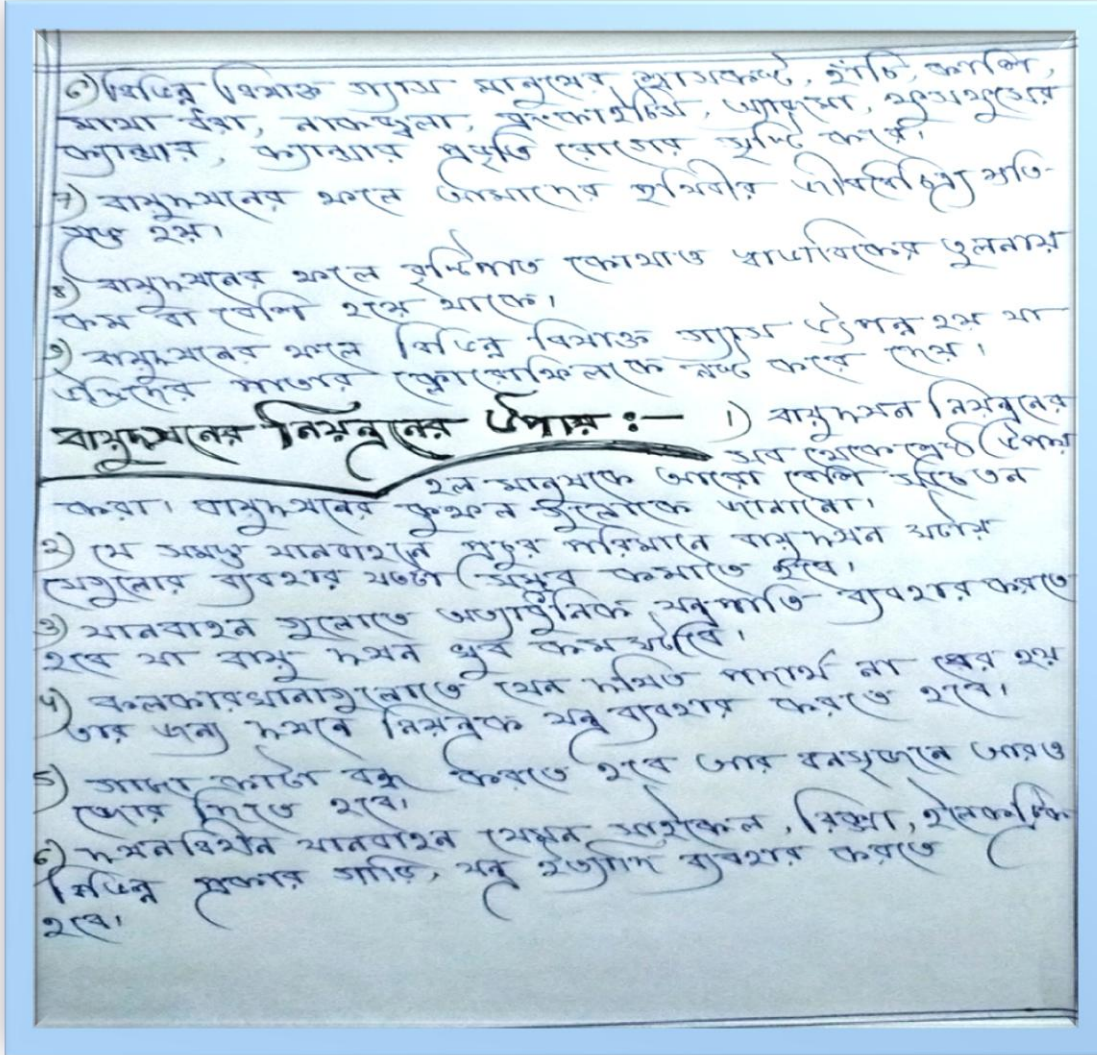 ৬) বিভিন্ন বিষাক্ত গ্যাস মানুষের শ্বাসকষ্ট, হাঁচি, কাশি,
মাথা ধরা, নাকজ্বলা, ব্রংকাইটিস, অ্যাজমা, ফুসফুসের
ক্যান্সার, ক্যান্সার প্রভৃতি রোগের সৃষ্টি করে।
7) বায়ুদূষনের ফলে আমাদের পৃথিবীর জীববৈচিত্র্য ক্ষতি-
গ্রস্ত হয়।
৪) বায়ুদূষনের ফলে বৃষ্টিপাত কোথাও স্বাভাবিকের তুলনায়
কম বা বেশি হয়ে থাকে।
9) বায়ুদূষনের ফলে বিভিন্ন বিষাক্ত গ্যাস উৎপন্ন হয় যা
উদ্ভিদের পাতার ক্লোরোফিলকে নষ্ট করে দেয়।
বায়ুদূষনের নিয়ন্ত্রনের উপায় :-
1) বায়ুদূষন নিয়ন্ত্রনের
সব থেকে শ্রেষ্ঠ উপায়
হল মানুষকে আরো বেশি সচেতন
করা। বায়ুদূষনের কুফল গুলোকে জানানো।
২) যে সমস্ত যানবাহনে প্রচুর পরিমানে বায়ুদূষন ঘটায়
সেগুলোর ব্যবহার যতটা সম্ভব কমাতে হবে।
৩) যানবাহন গুলোতে অত্যাধুনিক যন্ত্রপাতি ব্যবহার করতে
হবে যা বায়ু দূষন খুব কম ঘটাবে।
4) কলকারখানাগুলোতে যেন দূষিত পদার্থ না বের হয়
তার জন্য দূষনে নিয়ন্ত্রক যন্ত্র ব্যবহার করতে হবে।
5) গাছ কাটা বন্ধ করতে হবে আর বনসৃজনে আরও
জোর দিতে হবে।
৬) দূষনবিহীন যানবাহন যেমন সাইকেল, রিক্সা, ইলেকট্রিক
বিভিন্ন প্রকার গাড়ি, যন্ত্র ইত্যাদি ব্যবহার করতে
হবে।